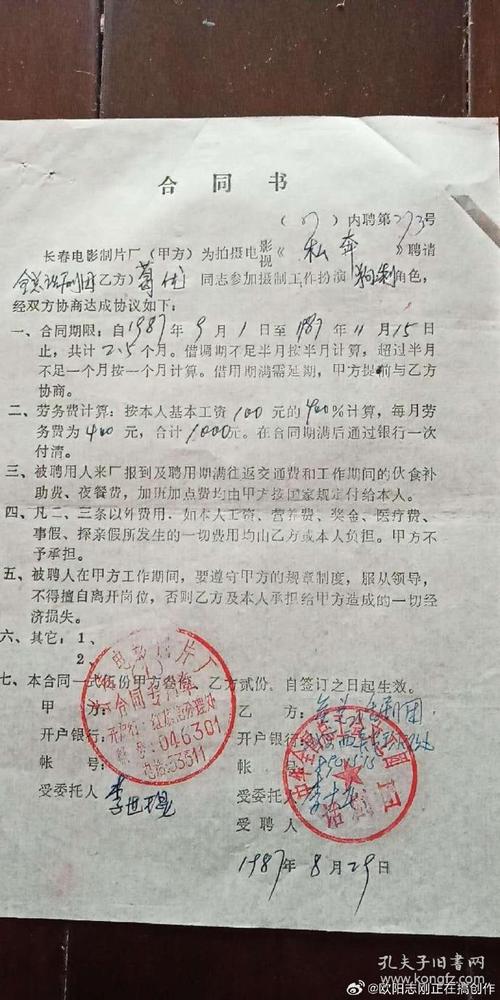 合同书
(87)内聘第273号
长春电影制片厂(甲方)为拍摄电影视《私奔》聘请
全总话剧团(乙方)葛优同志参加摄制工作扮演角色,
经双方协商达成协议如下:
一、合同期限:自1987年9月1日至1987年11月15日
止,共计2.5个月。借调期不足半月按半月计算,超过半月
不足一个月按一个月计算。借用期满需延期,甲方提前与乙方
协商。
二、劳务费计算:按本人基本工资100元的400%计算,每月劳
务费为400元,合计1000元。在合同期满后通过银行一次
付清。
三、被聘用人来厂报到及聘用期满往返交通费和工作期间的伙食补
助费、夜餐费,加班加点费均由甲方按国家规定付给本人。
四、凡二、三条以外费用,如本人工资、营养费、奖金、医疗费、
事假、探亲假所发生的一切费用均由乙方或本人负担。甲方不
予承担。
五、被聘人在甲方工作期间,要遵守甲方的规章制度,服从领导,
不得擅自离开岗位,否则乙方及本人承担给甲方造成的一切经
济损失。
六、其它:1、
2、
七、本合同一式伍份甲方叁份,乙方贰份,自签订之日起生效。
甲方: 乙方:全总话剧团
开户银行: 开户银行:
帐号: 帐号:
受委托人 李世 受委托人 李
受聘人
1987年8月29日
电影制片厂
合同专用章
开户行:红旗街办理处
帐号:046301
电话:53311
话剧团
孔夫子旧书网
@欧阳志刚正在搞创作